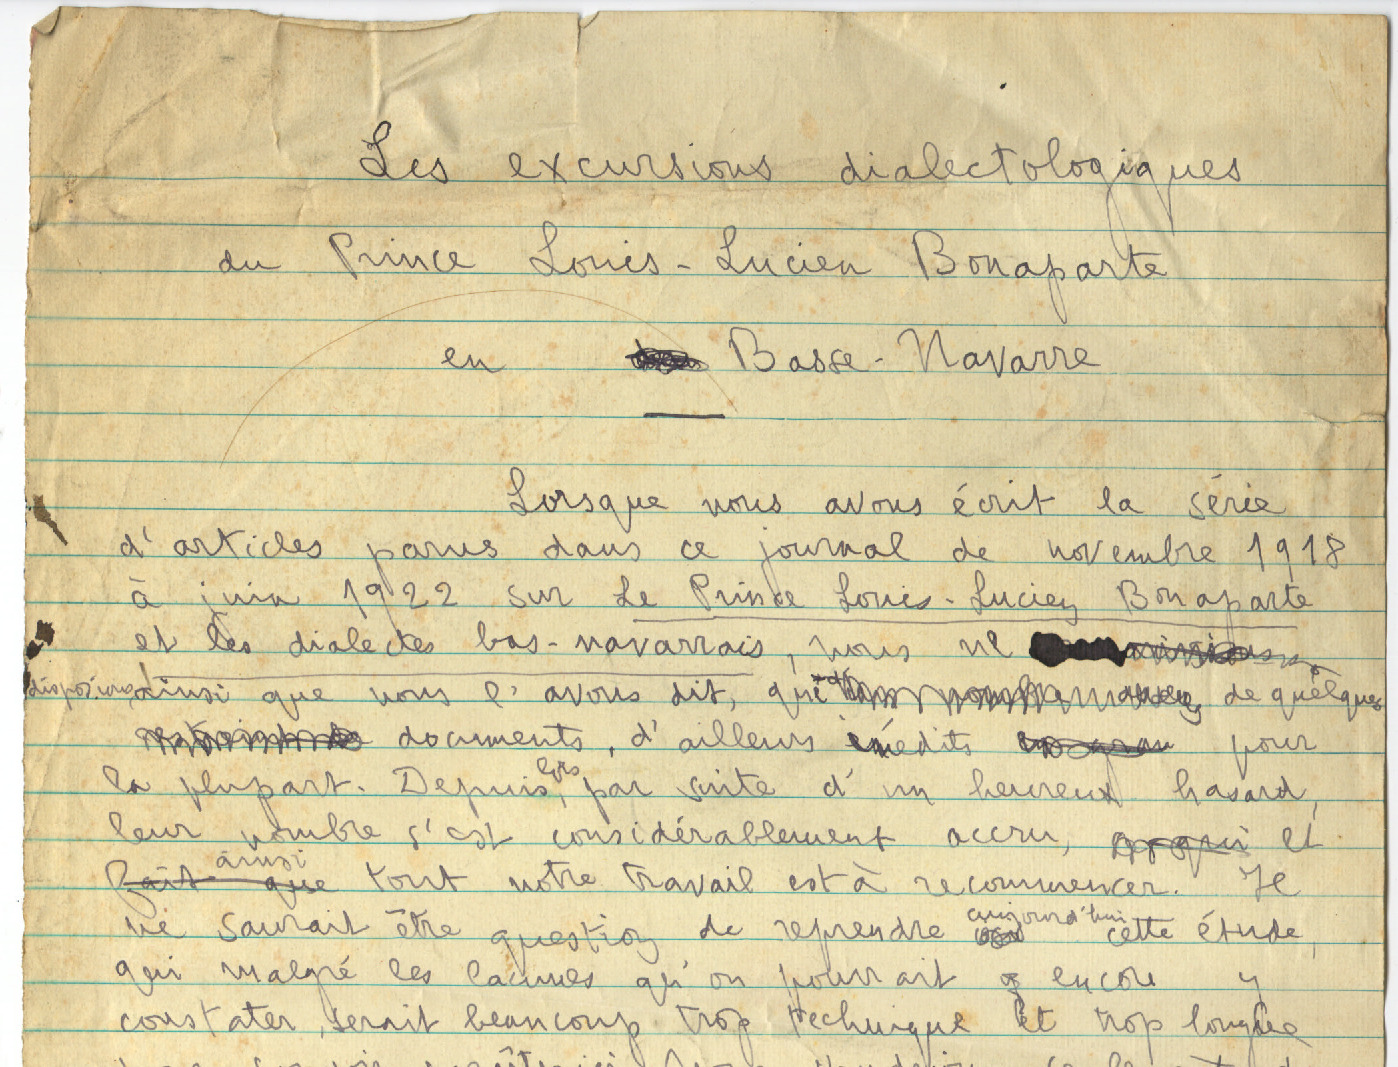 Les excursions dialectologiques
du Prince Louis-Lucien Bonaparte
en Basse-Navarre
Lorsque nous avons écrit la série
d'articles parus dans ce journal de novembre 1918
à juin 1922 sur Le Prince Louis-Lucien Bonaparte
et les dialectes bas-navarrais, nous ne
disposions, ainsi que nous l'avons dit, que de quelques
documents, d'ailleurs inédits pour
la plupart. Depuis lors, par suite d'un heureux hasard,
leur nombre s'est considérablement accru, et
ainsi
fait que tout notre travail est à recommencer. Il
ne saurait être question de reprendre aujourd'hui cette étude,
qui malgré les lacunes qu'on pourrait encore y
constater, serait beaucoup trop technique et trop longue